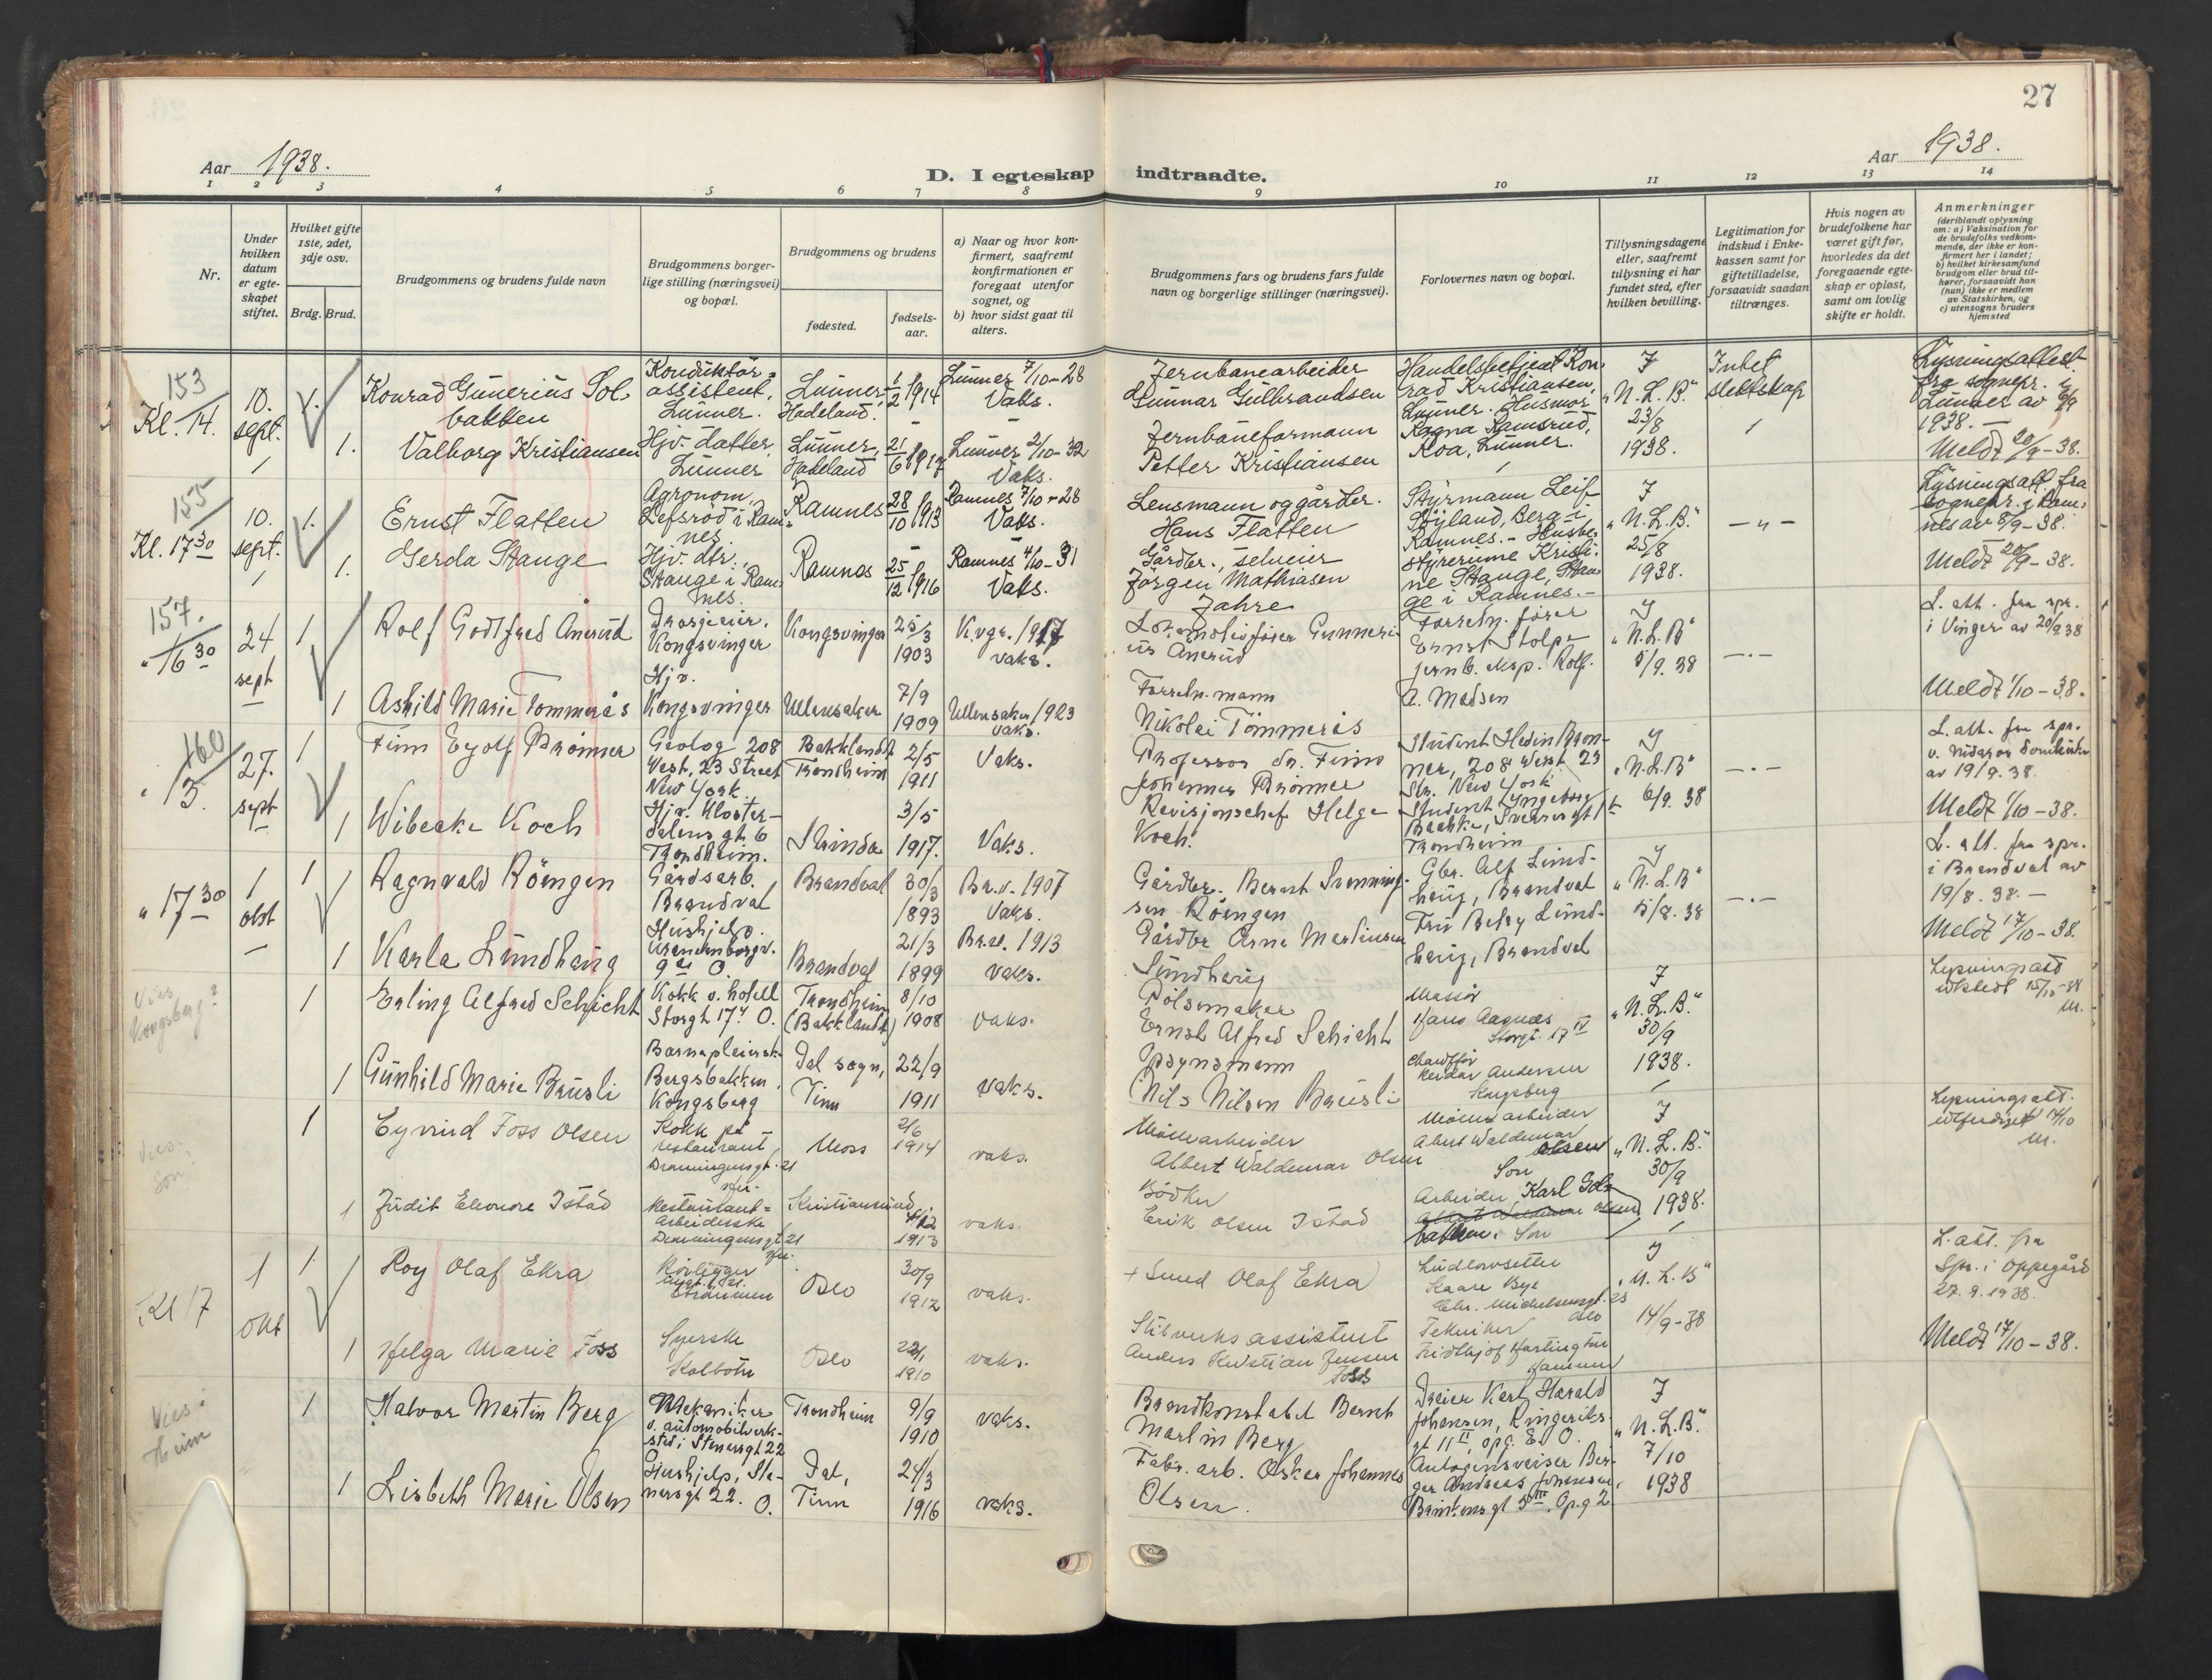 27
Aar 1938.
Aar 1938.
D. I egteskap indtraadte.
1 2 3 4 5 6 7 8 9 10 11 12 13 14
Nr.
Under
hvilken
datum
er egte-
skapet
stiftet.
Hvilket gifte
1ste, 2det,
3dje osv.
Brdg. Brud.
Brudgommens og brudens fulde navn
Brudgommens borger-
lige stilling (næringsvei)
og bopæl.
Brudgommens og brudens
fødested.
fødsels-
aar.
a) Naar og hvor kon-
firmert, saafremt
konfirmationen er
foregaat utenfor
sognet, og
b) hvor sidst gaat til
alters.
Brudgommens fars og brudens fars fulde
navn og borgerlige stillinger (næringsvei).
Forlovernes navn og bopæl.
Tillysningsdagene
eller, saafremt
tillysning ei har
fundet sted, efter
hvilken bevilling.
Legitimation for
indskud i Enke-
kassen samt for
giftetilladelse,
forsaavidt saadan
tiltrænges.
Hvis nogen av
brudefolkene har
været gift før,
hvorledes da det
foregaaende egte-
skap er opløst,
samt om lovlig
skifte er holdt.
Anmerkninger
(deriblandt oplysning
om: a) Vaksination for
de brudefolks vedkom-
mende, der ikke er kon-
firmert her i landet;
b) hvilket kirkesamfund
brudgom eller brud til-
hører, forsaavidt han
(hun) ikke er medlem
av Statskirken, og
c) utensogns bruders
hjemsted
153
Kl. 14.
10.
sept.
1.
Konrad Gunerius Sol
bakken
Konduktör-
assistent,
Lunner.
Lunner
Hadeland.
1/2 1914
Lunner 7/10-28
Vaks.
Jernbanearbeider
Gunnar Gulbrandsen
Handelsbetjent Kon-
rad Kristiansen,
Lunner. Husmor
Ragna Ramsrud,
Roa, Lunner.
I
"N.L.B."
23/8
1938.
Intet
slektskap
Lysningsattest
fra sognepr. i
Lunner av 6/9
1938. —
Meldt 20/9-38.
1.
Valborg Kristiansen
Hjv. datter,
Lunner
Lunner,
Hadeland
21/6 1917
Lunner 2/10-32
Vaks.
Jernbaneformann
Petter Kristiansen
155
Kl. 17 30
10.
sept.
1.
Ernst Flatten
Agronom,
Lefsröd i Ram-
nes.
Ramnes
28/10 1913
Ramnes 7/10-28
Vaks.
Lensmann og gårdbr.
Hans Flatten
Styrmann Leif
Berg i
Ramnes. - Husbe-
styrerinne Kristi-
ne Stange, Stan-
ge i Ramnes.-
I
"N.L.B."
25/8
1938.
— " —
Lysningsatt. fra
sognepr. i Ram-
nes av 8/9-38.
Meldt 20/9-38.
1.
Gerda Stange
Hjv. dtr.,
Stange i Ram-
nes.
Ramnes
25/12 1916
Ramnes 4/10-31
Vaks.
Gårdbr., selveier
Jörgen Mathiasen
Jahre
157.
" 16 30
24
sept
1
Rolf Godtfred Anerud
Drosjeeier,
Kongsvinger
Kongsvinger
25/3
1903
K.vgr. 1917
vaks.
Lokomotivförer Gunneri-
us Anerud
Forretn. förer
Ernst Stolpe
jernb. eksp. Rolf.
A. Madsen
I
"N.L.B"
5/9. 38
—.—
L. att. fra spr.
i Vinger av 20/9 38
Meldt 1/10-38.
1
Ashild Marie Tommerås
Hjv.
Kongsvinger
Ullensaker
7/9
1909
Ullensaker 1923
vaks.
Forretn. mann
Nikolai Tömmerås
160
" 13.
27.
sept
1
Finn Eyolf Brönner
Geolog 208
West, 23 Street
New York
Bakklandet
Trondheim
2/5
1911
Vaks.
Professor dr. Finn
Johannes Brönner
Student Hedin Bron-
ner, 208 West 23
Str. New York
Student Yngeborg
Trondheim
I
"N.L.B"
6/9. 38
—.—
L. att. fra spr.
v. Nidaros domkirke
av 19/9. 38.
Meldt 1/10-38.
1
Wibecke Koch
Hjv. Kloster-
dalens gt 6
Trondheim.
Strinda
3/5
1917.
Vaks.
Revisjonschef Helge
Koch.
" 17 30
1
okt
1
Ragnvald Röengen
Gårdsarb.
Brandval
Brandval
30/3
1893
Br.v. 1907
Vaks.
Gårdbr. Bernt Svenning-
sen Röengen
Gbr. Alf Lund-
haug, Brandval
Fru Betsy Lund-
haug, Brandval
I
"N.L.B"
5/8. 38
—.—
L. att. fra spr.
i Brandval av
19/8. 38. —
Meldt 17/10-38.
1
Karla Lundhaug
Hushjelp.
Uranienborgv.
9 O.
Brandval
21/3
1899
Br.v. 1913
vaks.
Gårdbr Arne Martinsen
Lundhaug
Vies
Kongsberg?
1
Erling Alfred Schicht
Kokk v. hotell
Storgt 17 O.
Trondheim
(Bakklandet)
8/10
1908
vaks.
Pölsemaker
Ernst Alfred Schicht
Massör
Hans Aagnæs
Storgt. 17 IV
Chauffør
Reidar Andersen
Kongsberg
I
"N.L.B."
30/9
1938.
Lysningsatt
utstedt 15/10-38
1
Gunhild Marie Brusli
Barnepleiersk.
Bergsbakken
Kongsberg
Dal sogn,
Tinn
22/9
1911
vaks.
Opsynsmann
Nils Nilsen Brusli
Vies
Son
1
Eyvind Foss Olsen
Kokk på
restaurant,
Drammensgt. 21
Moss
2/6
1914
vaks.
Möllearbeider
Albert Waldemar Olsen
Möllearbeider
Albert Waldemar
Olsen
Son
Arbeider Karl Gol-
bakken. Son
I
"N.L.B."
30/9
1938.
Lysningsatt.
utferdiget 14/10
1
Judit Eleonore Istad
Restaurant-
arbeiderske
Drammensgt 21
Kristiansund
4/12
1913
vaks.
Bödker
Erik Olsen Istad
Kl 17
1
okt
1.
Roy Olaf Ekra
Rörlegger
Strömmen
Oslo
30/9
1912
vaks.
+ Smed Olaf Ekra
Kaare Bye
Chr. Michelsensgt. 25
Oslo
Tekniker
Fridtjof Hartington
Hammer
I
"N.L.B"
14/9-38
L. att. fra
Spr. i Oppegård
27.9.1938.
Meldt 17/10-38.
1
Helga Marie Foss
Syerske
Kolbotn
Oslo
22/1
1910
vaks.
Stikningsassistent
Anders Kristian Jensen
Foss
Vies i
Theim
1
Halvor Martin Berg
Mekaniker
v. automobilverk-
sted i Stenersgt 22
Trondheim
9/9
1910
vaks.
Brandkonstabel Bernt
Martin Berg
Dreier Karl Harald
Johansen, Ringeriks-
gt 11 II, opg. E. O.
Autogensveiser Bir-
ger Andreas Johansen,
I
"N.L.B."
7/10
1938
1
Lisbeth Marie Olsen
Hushjelp, Ste-
nersgt 22. O.
Dal,
Tinn
24/3
1916
vaks.
Fabr. arb. Oskar Johannes
Olsen.